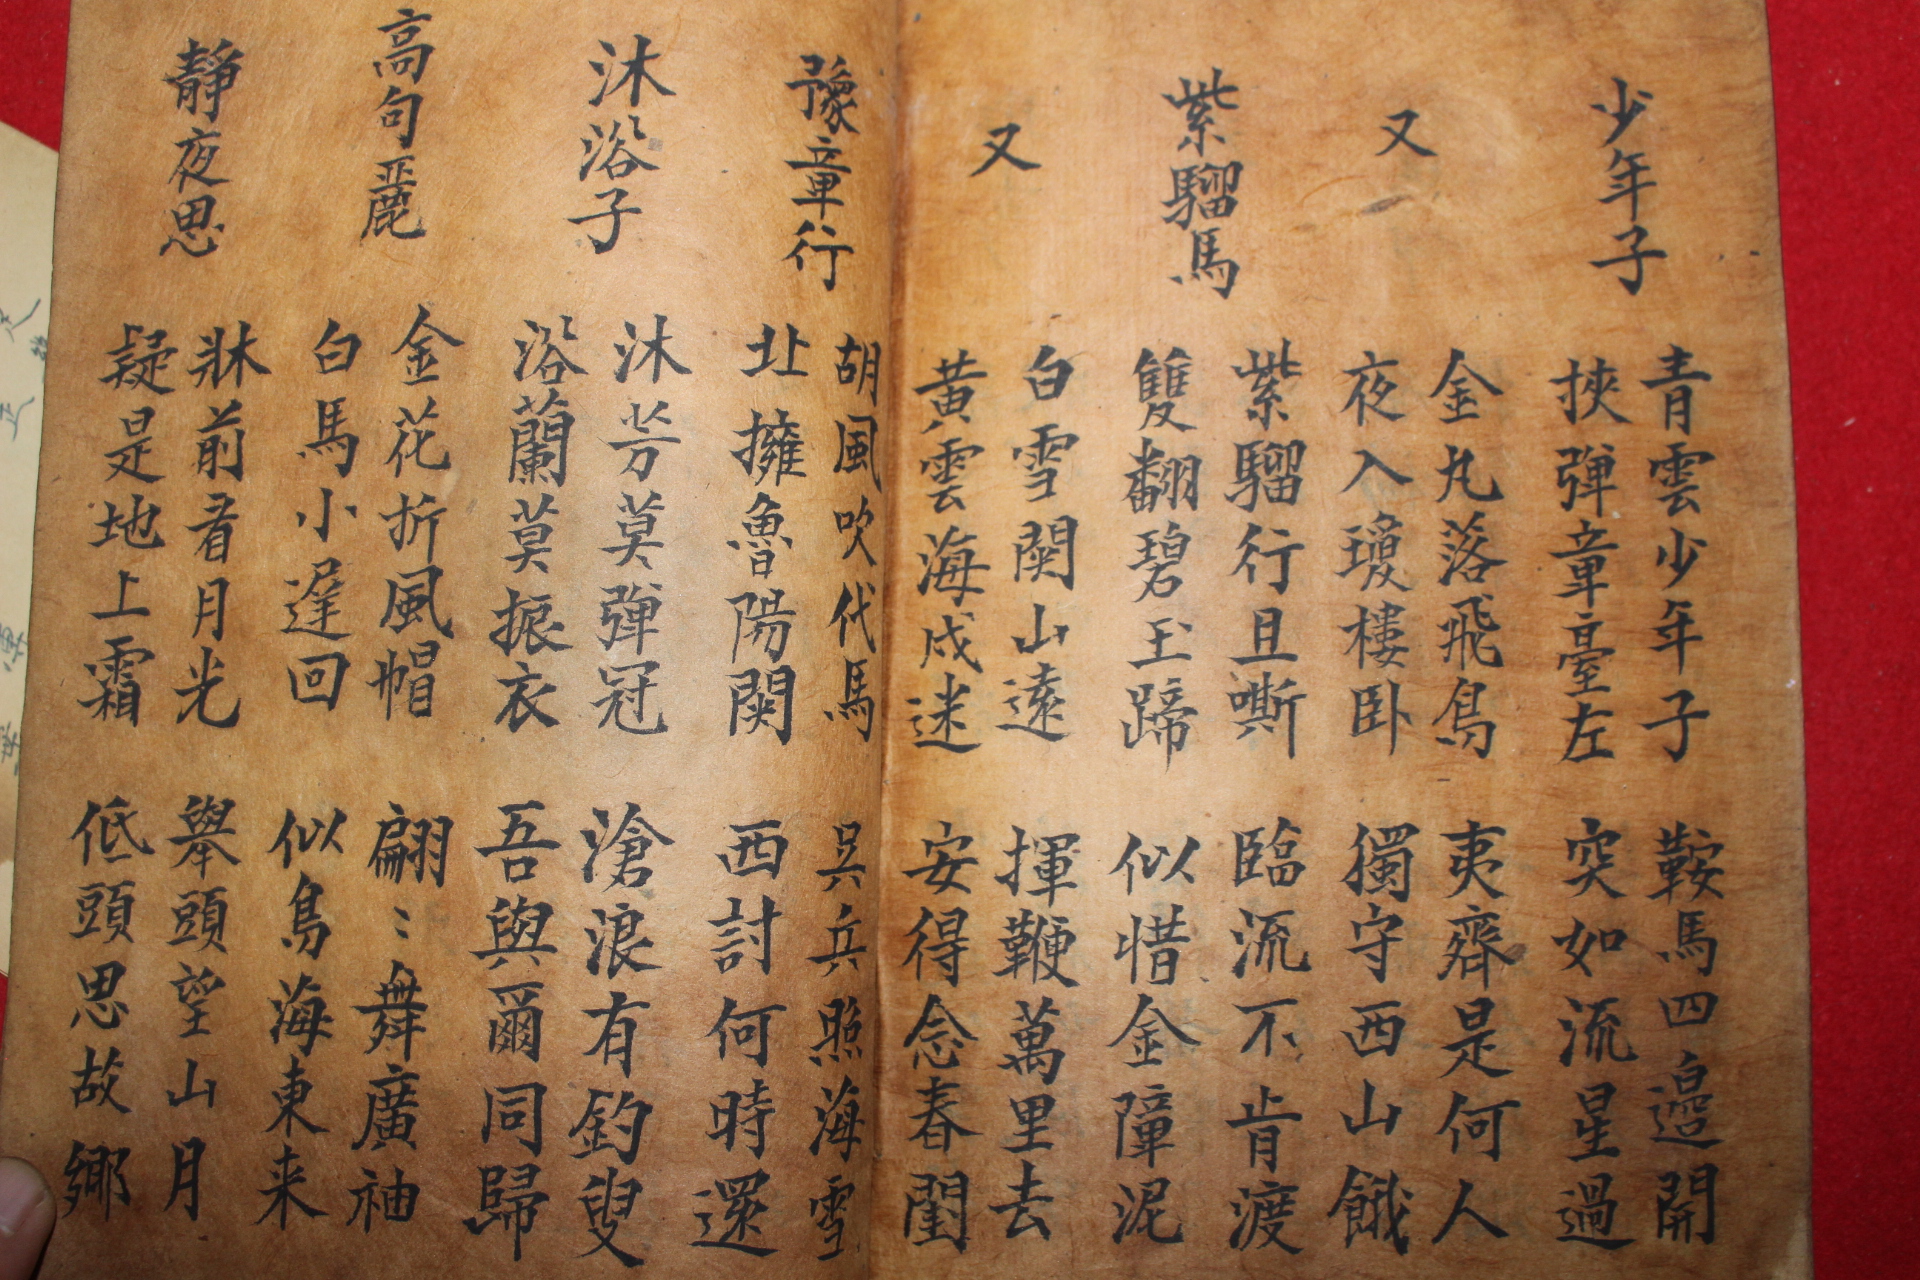 少年子
青雲少年子
挾彈章臺左
鞍馬四邊開
突如流星過
又
金丸落飛鳥
夜入瓊樓卧
夷齊是何人
獨守西山餓
紫騮馬
紫騮行且嘶
雙翻碧玉蹄
臨流不肯渡
似惜金障泥
又
白雪関山遠
黃雲海戍迷
揮鞭萬里去
安得念春閨
豫章行
胡風吹代馬
北擁魯陽関
吳兵照海雪
西討何時還
沐浴子
沐芳莫彈冠
浴蘭莫振衣
滄浪有釣叟
吾與爾同歸
高句麗
金花折風帽
白馬小遲回
翩〻舞廣袖
似鳥海東来
靜夜思
牀前看月光
疑是地上霜
舉頭望山月
低頭思故鄉